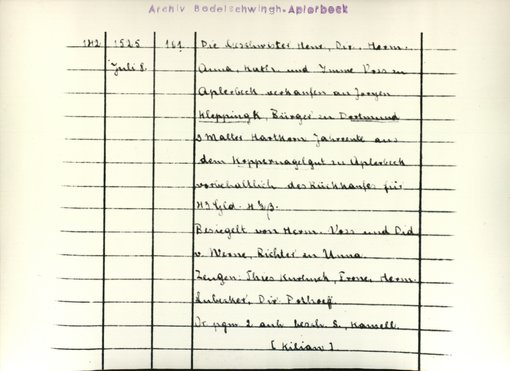 Archiv Bodelschwingh-Aplerbeck
142 1525 161 Die Geschwister Henr, Dir, Herm.
Juli 8. Anna, Kath. und Ymme Voss zu
Aplerbeck verkaufen an Jorgen
Kleppingk, Bürger zu Dortmund
3 Malter Hartkorn Jahrrente aus
dem Koppernagelgut zu Aplerbeck
vorbehaltlich des Rückkaufes für
Gld.
Besiegelt von Herm. Voss und Did
v. Werne, Richter zu Unna.
Zeugen: Herm.
Dir Pothoeff
Or pgm 2 anh besch S.
[Kilian]